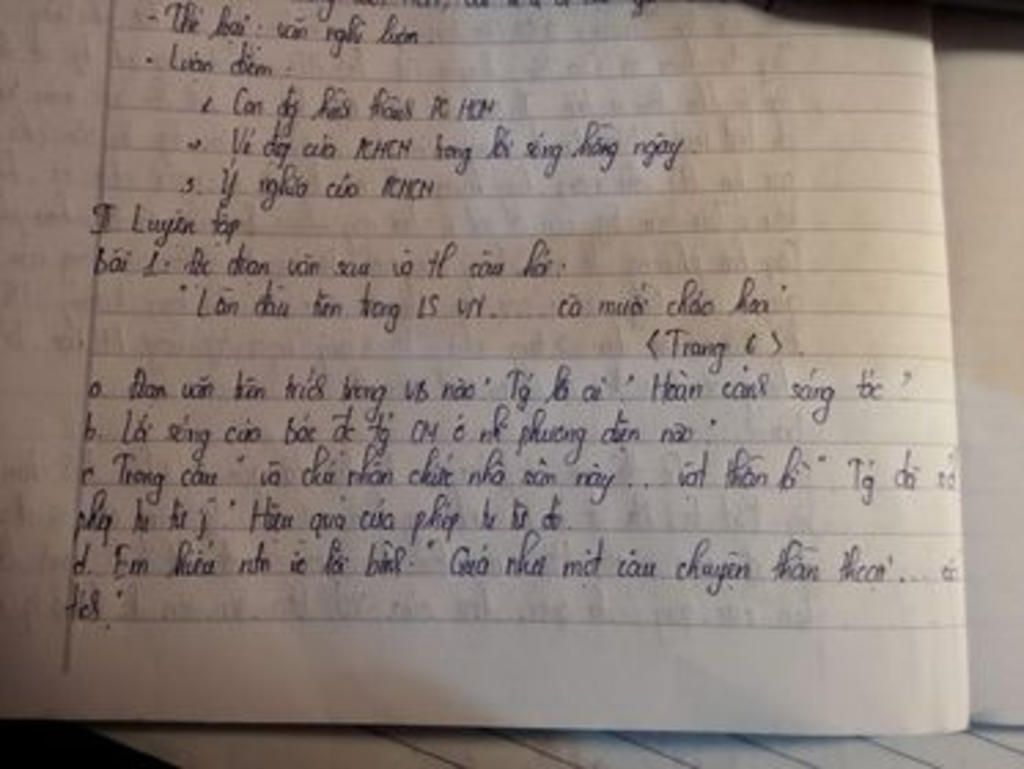 - Thể loại: văn nghị luận.
- Luận điểm:
1. Con đg hình thành PC HCM.
2. Vẻ đẹp của PCHCM trong lối sống hằng ngày.
3. Ý nghĩa của PCHCM
II Luyện tập
Bài 1: Đọc đoạn văn sau và tl câu hỏi:
"Lần đầu tiên trong LS VN..... cà muối cháo hoa"
(Trang 6).
a. Đoạn văn trên trích trong VB nào? Tg là ai? Hoàn cảnh sáng tác?
b. Lối sống của Bác đc tg CM ở nh phương diện nào?
c. Trong câu "và chủ nhân chiếc nhà sàn này... vật thần kì" Tg đã sd
phép tu từ j? Hiệu quả của phép tu từ đó.
d. Em hiểu ntn về lời bình: "Quả như một câu chuyện thần thoại... cổ
tích."